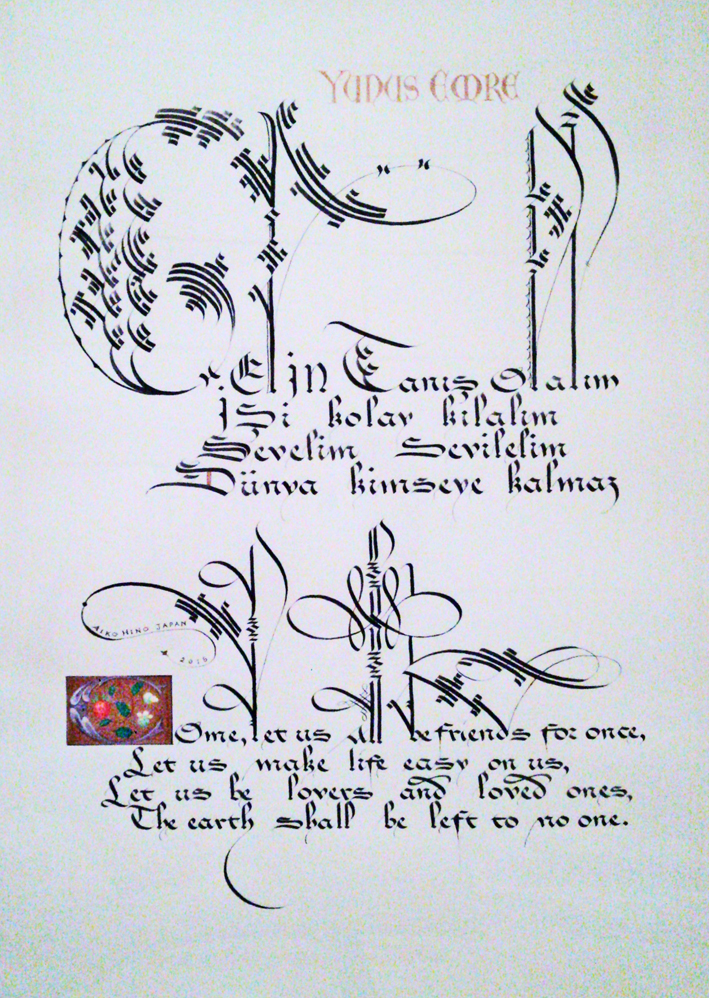 YUNUS EMRE
GElİN Tanış Olalım
İŞi kolay kılalım
Sevelim Sevilelim
Dünya kimseye kalmaz
AIKO HINO JAPAN
Come, let us all be friends for once,
Let us make life easy on us,
Let us be lovers and loved ones,
The earth shall be left to no one.